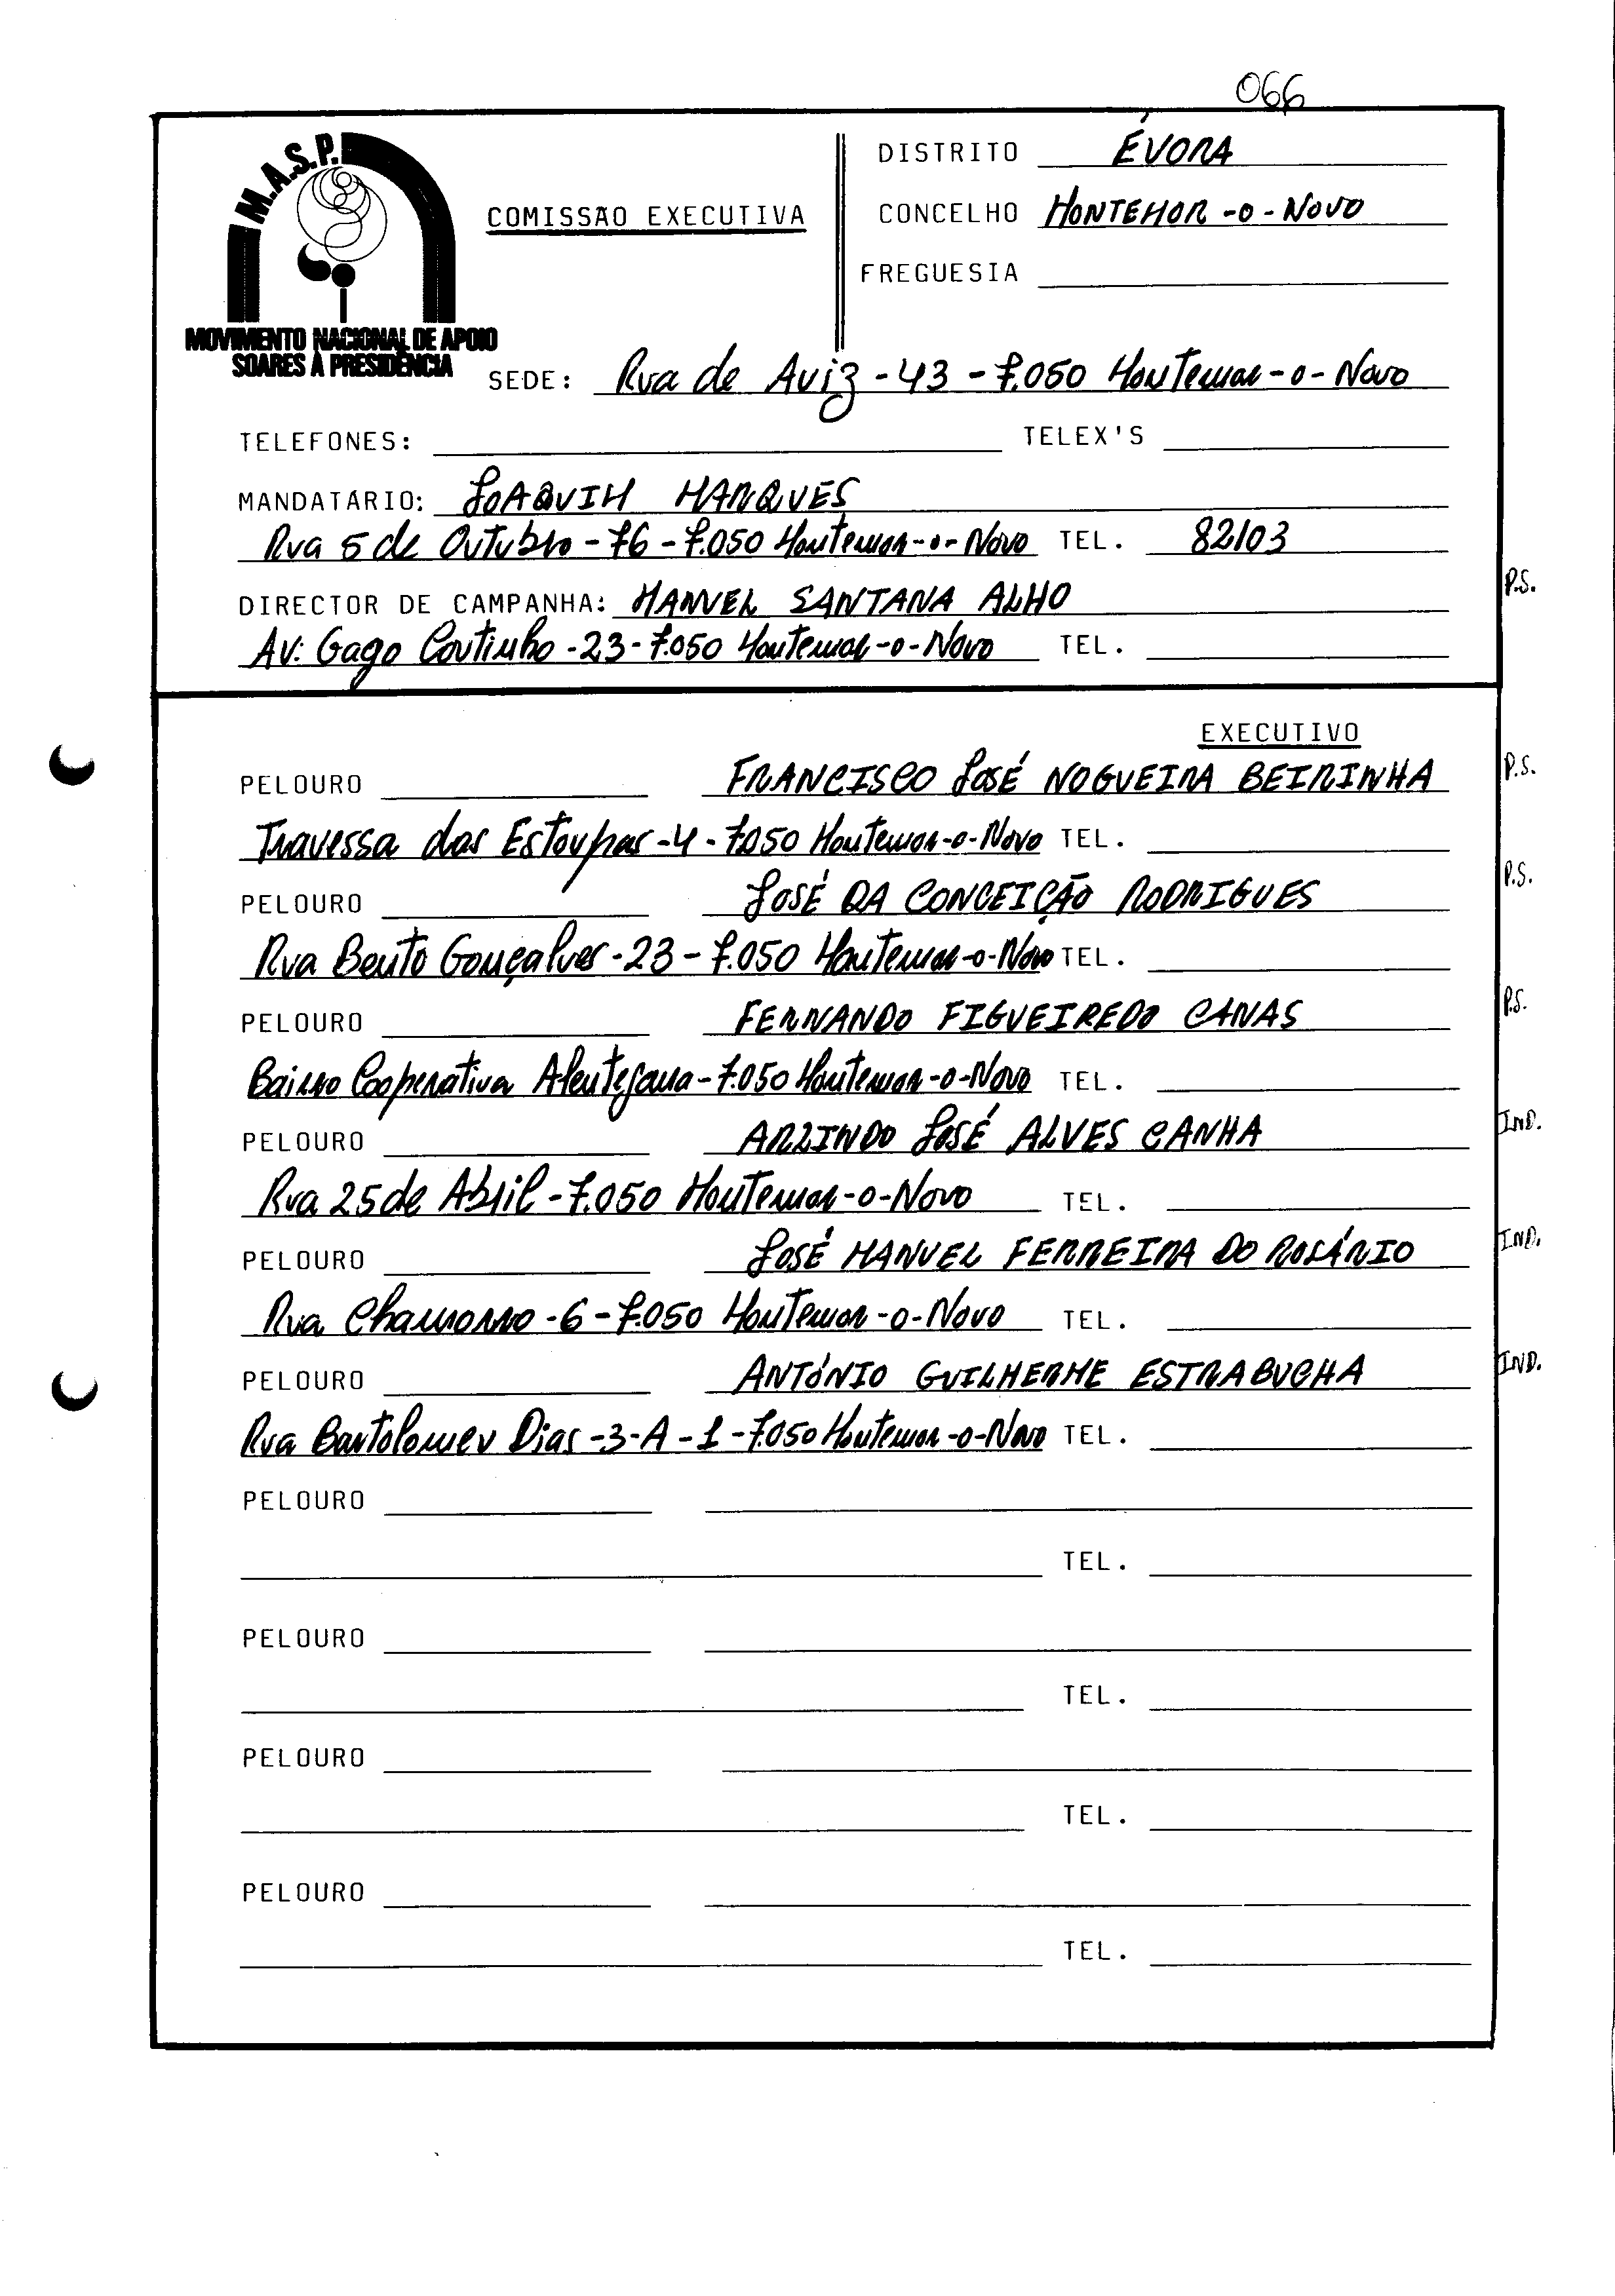 066
M.A.S.P.
MOVIMENTO NACIONAL DE APOIO
SOARES À PRESIDÊNCIA
COMISSAO EXECUTIVA
DISTRITO ÉVORA
CONCELHO MONTEMOR-O-NOVO
FREGUESIA
SEDE: Rua de Aviz-43-7.050 Montemor-o-Novo
TELEFONES: TELEX'S
MANDATARIO: JOAQUIM MARQUES
Rua 5 de Outubro-76-7.050 Montemor-o-Novo TEL. 82103
DIRECTOR DE CAMPANHA: MANUEL SANTANA ALHO P.S.
Av: Gago Coutinho-23-7.050 Montemor-o-Novo TEL.
EXECUTIVO
PELOURO FRANCISCO JOSÉ NOGUEIRA BEIRINHA P.S.
Travessa das Estoupas-4-7.050 Montemor-o-Novo TEL.
PELOURO JOSÉ DA CONCEIÇÃO RODRIGUES P.S.
Rua Bento Gonçalves-23-7.050 Montemor-o-Novo TEL.
PELOURO FERNANDO FIGUEIREDO CANAS P.S.
Bairro Cooperativa Alentejana-7.050 Montemor-o-Novo TEL.
PELOURO ARLINDO JOSÉ ALVES CANHA IND.
Rua 25 de Abril-7.050 Montemor-o-Novo TEL.
PELOURO JOSÉ MANUEL FERREIRA DO ROSÁRIO IND.
Rua Chamorro-6-7.050 Montemor-o-Novo TEL.
PELOURO ANTÓNIO GUILHERME ESTRABUCHA IND.
Rua Bartolomeu Dias-3-A-1-7.050 Montemor-o-Novo TEL.
PELOURO
TEL.
PELOURO
TEL.
PELOURO
TEL.
PELOURO
TEL.